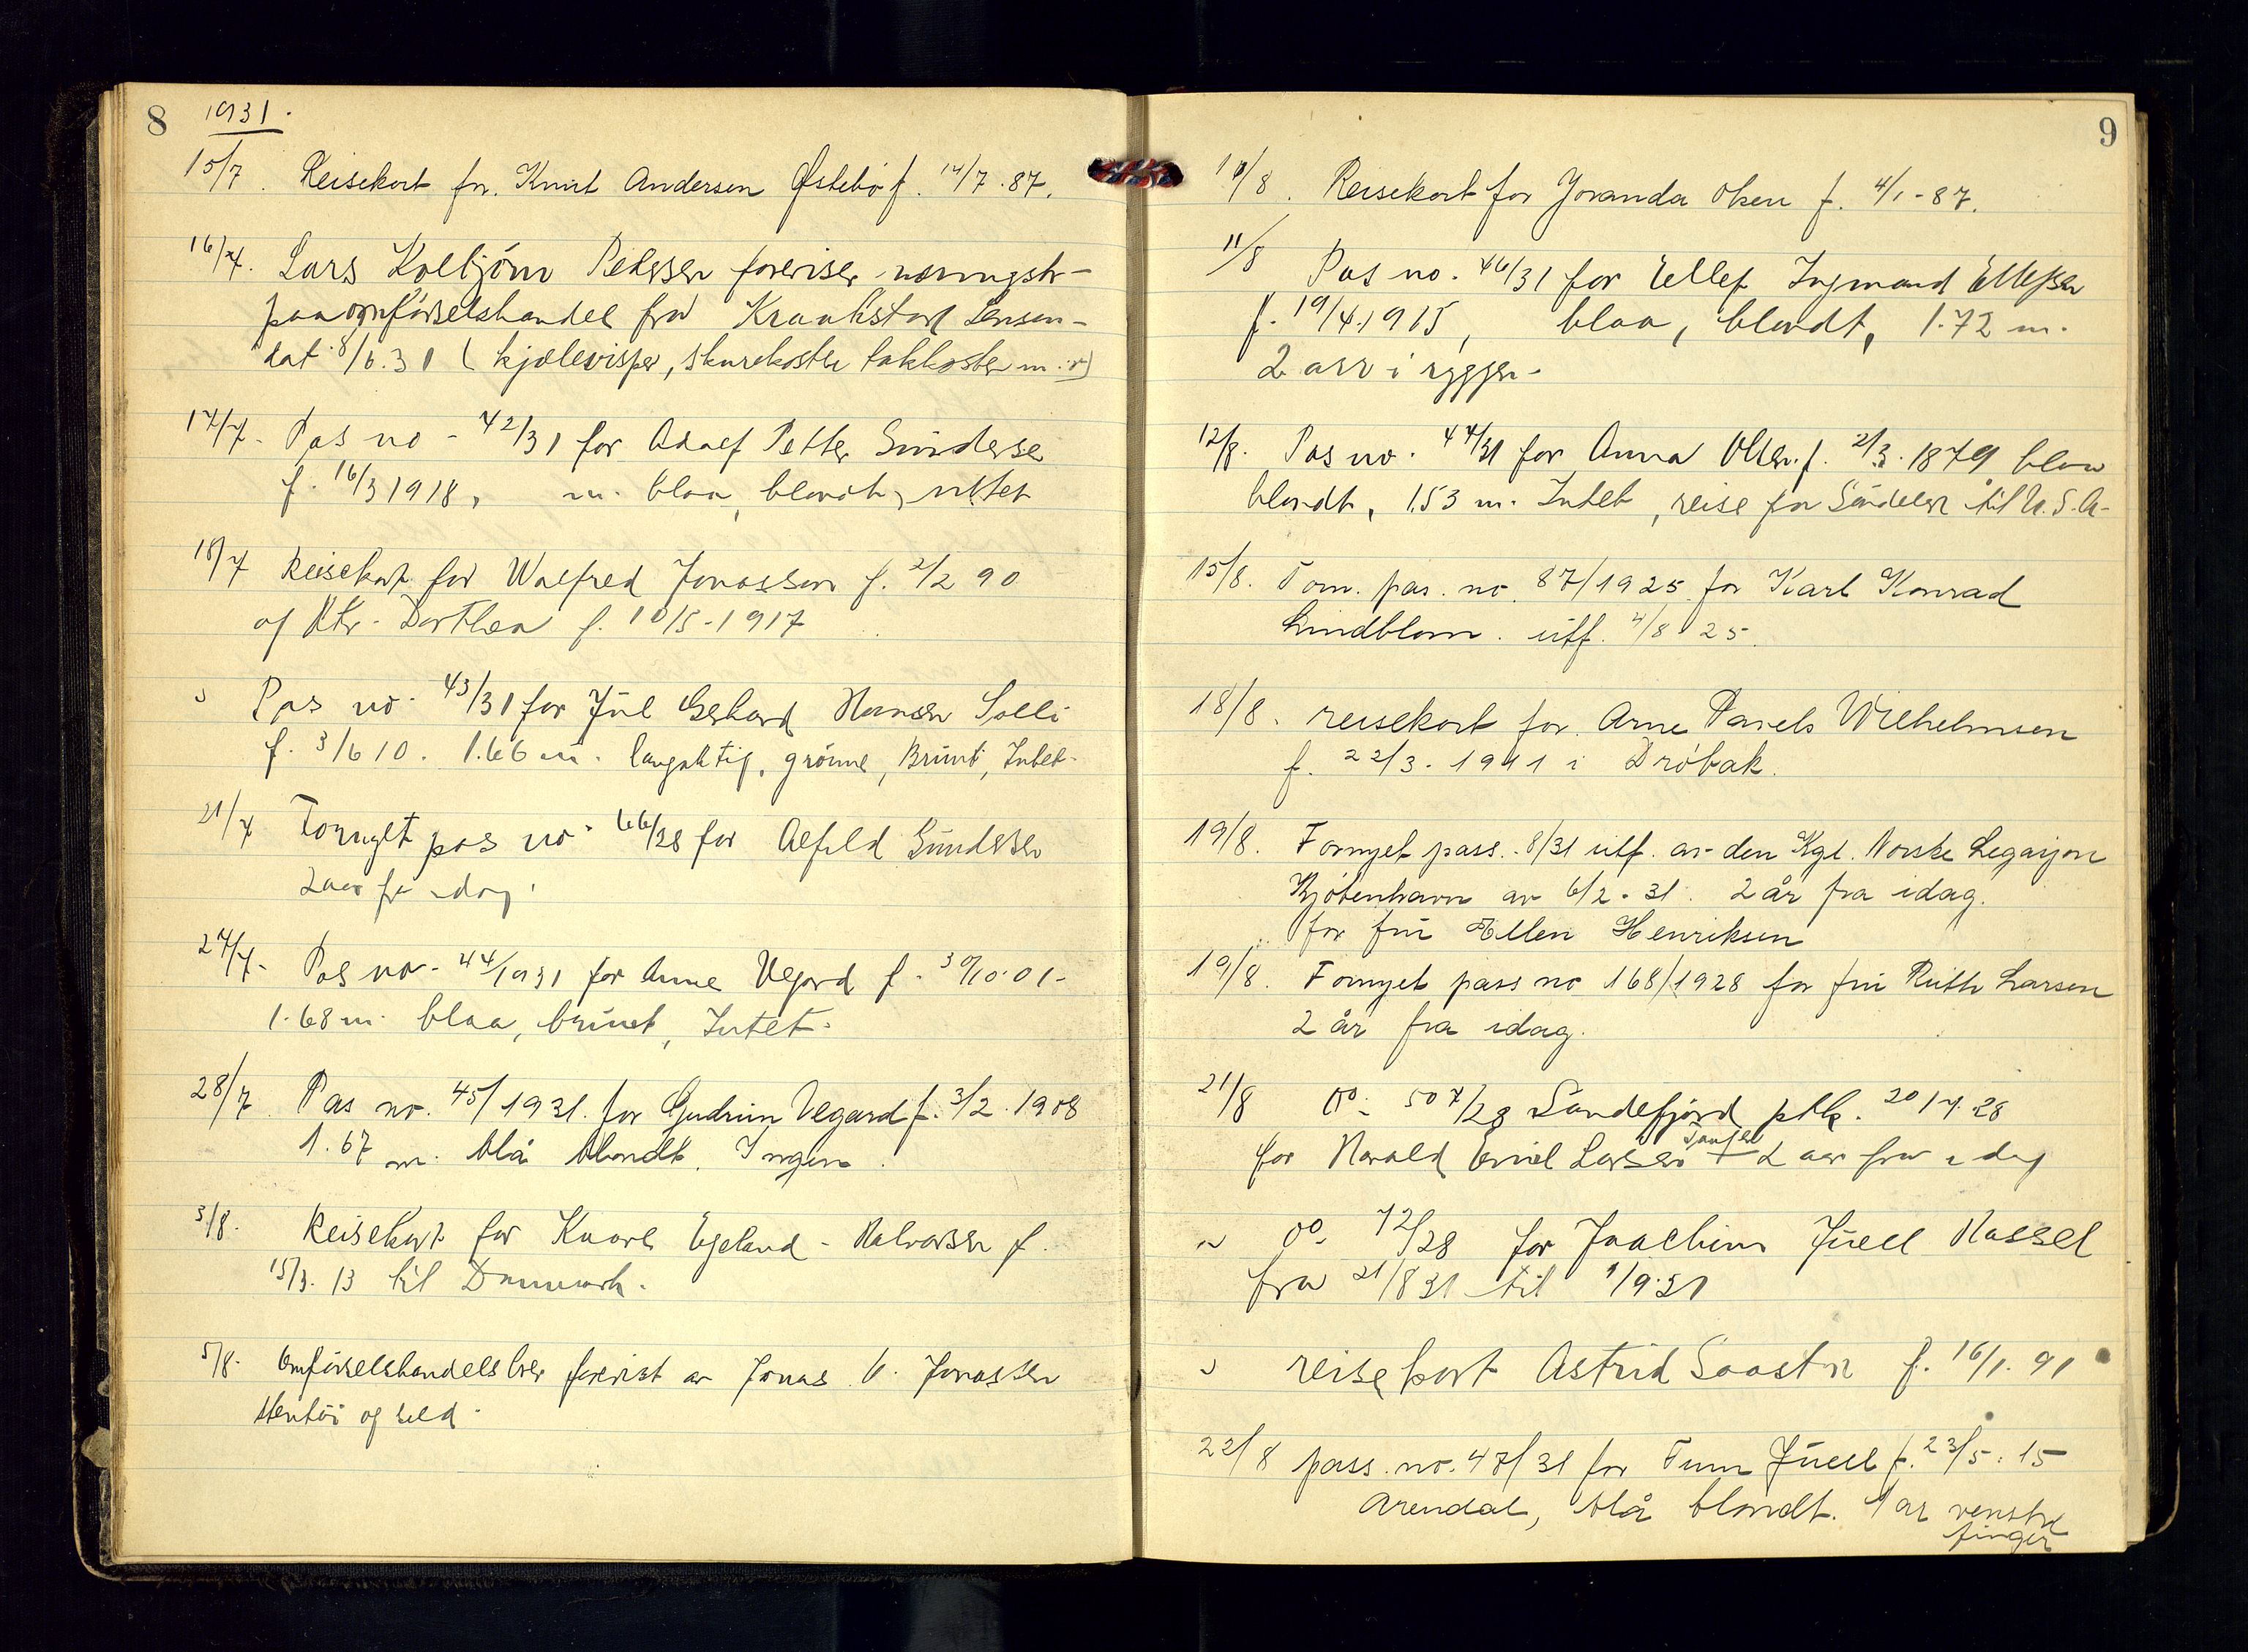 8 1931.
15/7. Reisekort for. Knut Andersen Østebö f. 14/7.87.
16/7. Lars Kolbjörn Pedersen foreviser
paa omförselshandel fra Kraakstad Lensm-
dat 8/6.31 (kjølevisper, skurekoster takkoster m.v)
17/7. Pas no - 42/31 for Adolf Petter Gundersen
f. 16/3 1918, m. blaa, blondt, intet
18/7 Reisekort for Walfred Jonassen f. 2/2 90
og Dorthea f. 10/5-1917
" Pas no. 43/31 for Jul Gerhard Hansen Solli
f. 3/6 10. 1.66 m. langaktig, grönne, Brunt, Intet-
21/7 Fornyet pas no. 66/28 for Alfild Gundersen
2 aar fra idag.
27/7- Pas no - 44/1931 for Anne Vegard f. 30/10.01-
1.68 m. blaa, brunt, Intet-
28/7 Pas no. 45/1931. for Gudrun Vegard f. 3/2.1908
1.67 m. blå blondt. Ingen.
3/8. Reisekort for Kaare Egeland-Halvorsen f.
15/3.13 til Danmark.
5/8. Omförselshandelsbrev forevist av Jonas Jonassen
Stentöi og
9
10/8. Reisekort for Jovanda Olsen f. 4/1-87.
11/8 Pas no. 46/31 for Ellef Ingmand Ellefsen
f. 19/4.1915, blaa, blondt, 1.72 m.
2 arr i ryggen-
12/8. Pas no. 47/31 for Anna Olsen f. 2/3.1879 blaa
blondt, 1.53 m. Intet, reise for Söndeled til U.S.A-
15/8. Forn. pas. no. 87/1925 for Karl Konrad
Lindblom. utf. 4/8 25.
18/8. reisekort for. Arne Pavels Wilhelmsen
f. 22/3.1911 i Dröbak.
19/8. Fornyet pass. 8/31 utf. av den Kgl. Norske Legasjon
Kjöbenhavn av 6/2-31. 2 år fra idag.
for fru Ellen Henriksen
19/8. Fornyet pass no 168/1928 for fru Ruth Larsen
2 år fra idag.
21/8 Do. 507/28 Sandefjord ptk. 20/4.28
for Harald Emil Larsen 2 aar fra idag
" Do. 72/28 for Joachim Juell Hassel
fra 21/8 31 til 1/9.31
" reisekort Astrid f. 16/1.91
22/8 pass. no. 47/31 for Juell f. 23/5.15
Arendal, blå blondt. 1 ar venstre
finger